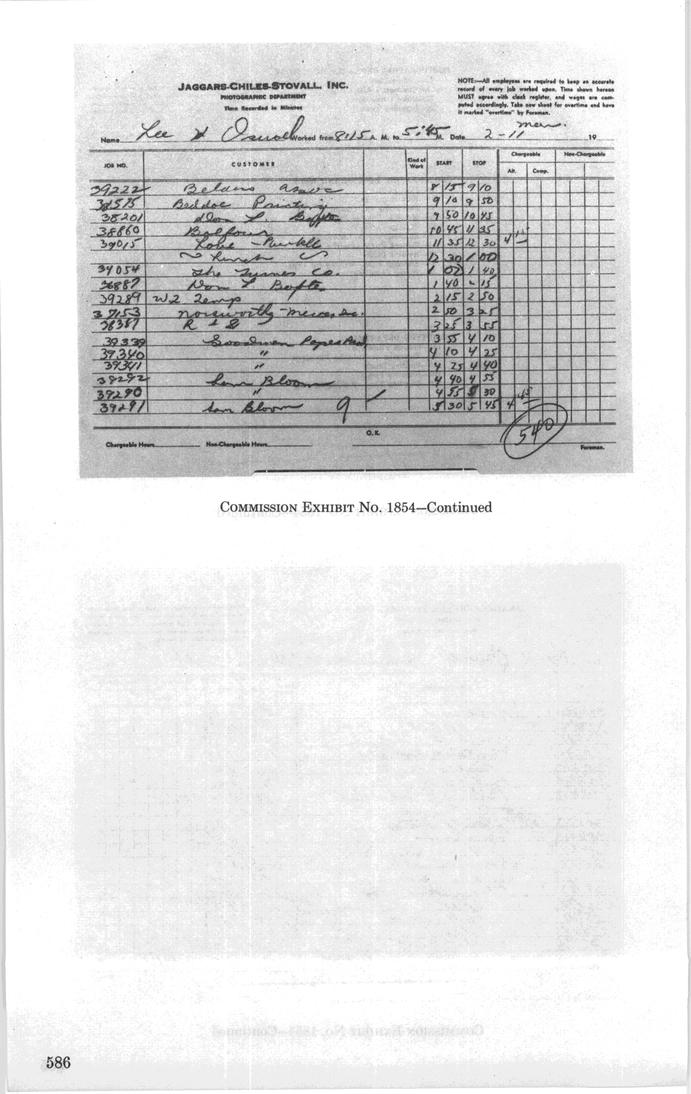 JAGGARS-CHILES-STOVALL, INC.
PHOTOGRAPHIC DEPARTMENT
Time Recorded in Minutes
NOTE:—All employees are required to keep an accurate
record of every job worked upon. Time shown hereon
MUST agree with clock register, and wages are com-
puted accordingly. Take new sheet for overtime and have
it marked "overtime" by Foreman.
Name Lee H Oswald Worked from 8:15 A. M. to 5:45 M. Date 2-11 Mon. 19
JOB NO. CUSTOMER Kind of Work START STOP Chargeable Non-Chargeable
Alt. Comp.
39222 Beldens Assoc 8 15 9 10
Beddoe Printing 9 10 9 50
38201 Don L. 9 50 10 45
38860 Balfour 10 45 11 35
39015 11 35 12 30 4 15
~ Lunch ~ 12 30 1 00
39054 The Tymes Co. 1 00 1 40
Don L. 1 40 2 15
39289 W2 Temp 2 15 2 50
37153 2 50 3 25
38387 R + S 3 25 3 55
39339 Goodman 3 55 4 10
39340 " 4 10 4 25
39341 " 4 25 4 40
39292 Sam Bloom 4 40 4 55
39290 " 4 55 5 30
39291 Sam Bloom 9 ✓ 5 30 5 45 4 45
540
O.K.
Chargeable Hours Non-Chargeable Hours Foreman.
COMMISSION EXHIBIT NO. 1854—Continued
586